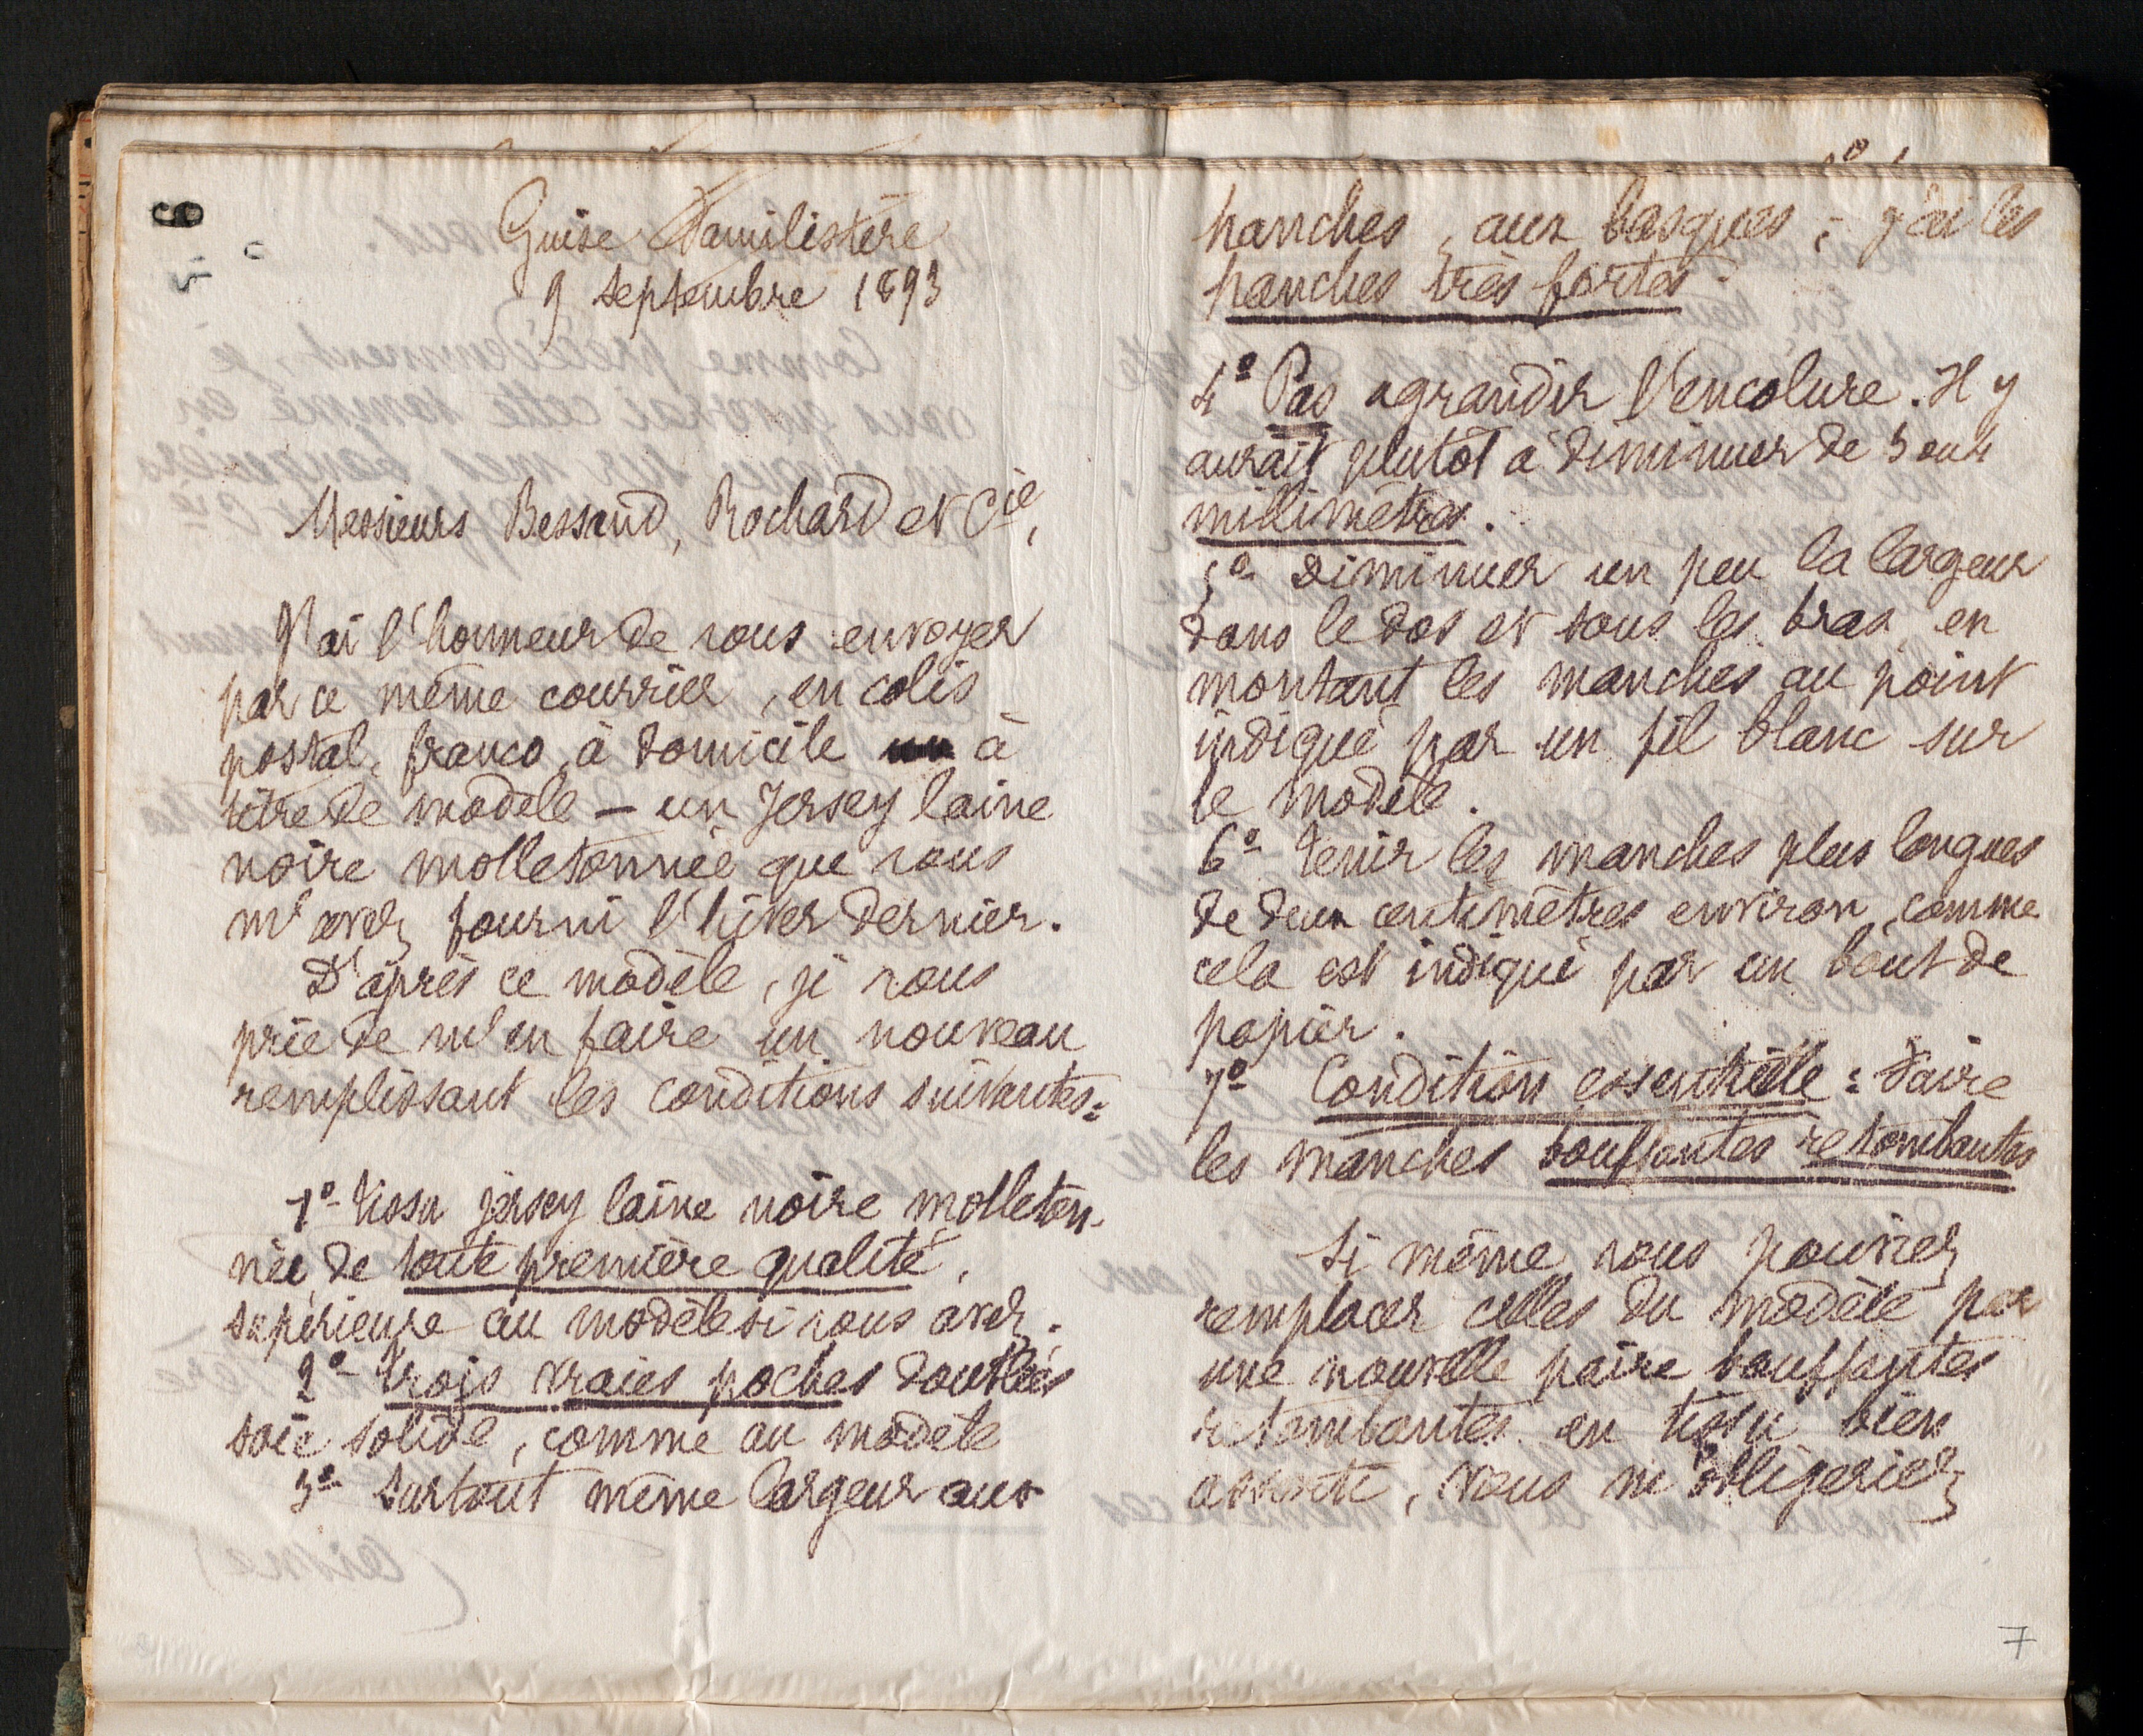 6
Guise Familistère
9 septembre 1893
Messieurs Bessand, Rochard et Cie,
J'ai l'honneur de vous envoyer
par ce même courrier, en colis
postal, franco, à domicile à
titre de modèle – un Jersey laine
noire molletonnée que vous
m'avez fourni l'hiver dernier.
D'après ce modèle, je vous
prie de m'en faire un nouveau
remplissant les conditions suivantes :
1º Tissu jersey laine noire molleton-
née, de toute première qualité,
supérieure au modèle si vous avez.
2º Trois vraies poches doublées
soie solide, comme au modèle
3º Surtout même largeur aux
hanches, aux basques ; j'ai les
hanches très fortes.
4º Pas agrandir l'encolure. Il y
aurait plutôt à diminuer de 3 ou 4
millimètres.
5º Diminuer un peu la largeur
dans le dos et sous les bras en
montant les manches au point
indiqué par un fil blanc sur
le modèle.
6º Tenir les manches plus longues
de deux centimètres environ, comme
cela est indiqué par un bout de
papier.
7º Condition essentielle : Faire
les manches bouffantes retombantes
Si même vous pouviez
remplacer celles du modèle par
une nouvelle paire bouffantes
retombantes en tissu bien
assorti, vous m'obligeriez
7